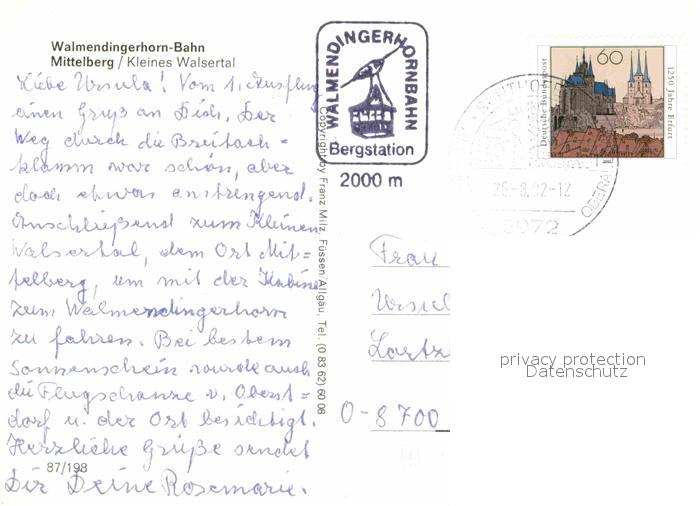 Walmendingerhorn-Bahn
Mittelberg / Kleines Walsertal
Liebe Ursula! Vom 1. Ausflug
einen Gruß an Dich. Der
Weg durch die Breitach=
klamm war schön, aber
doch etwas anstrengend.
Anschließend zum Kleinen
Walsertal, dem Ort Mit=
telberg, um mit der Kabine
zum Walmendingerhorn
zu fahren. Bei bestem
Sonnenschein wurde auch
die Flugschanze v. Oberst=
dorf u. der Ort besichtigt.
Herzliche Grüße sendet
87/198
Dir Deine Rosemarie.
Copyright by Franz Milz, Füssen/Allgäu, Tel. (0 83 62) 60 08
WALMENDINGERHORNBAHN
Bergstation
2000 m
60
Deutsche Bundespost
1250 Jahre Erfurt
OBERAL
26.-8.92-12
8972
Frau
Ursul
Lortz
O-8700
privacy protection
Datenschutz